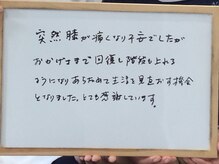 突然膝が痛くなり不安でしたが
おかげさまで回復し階段も上れる
ようになりあらためて生活を見直おす機会
となりました。とても感謝しています。